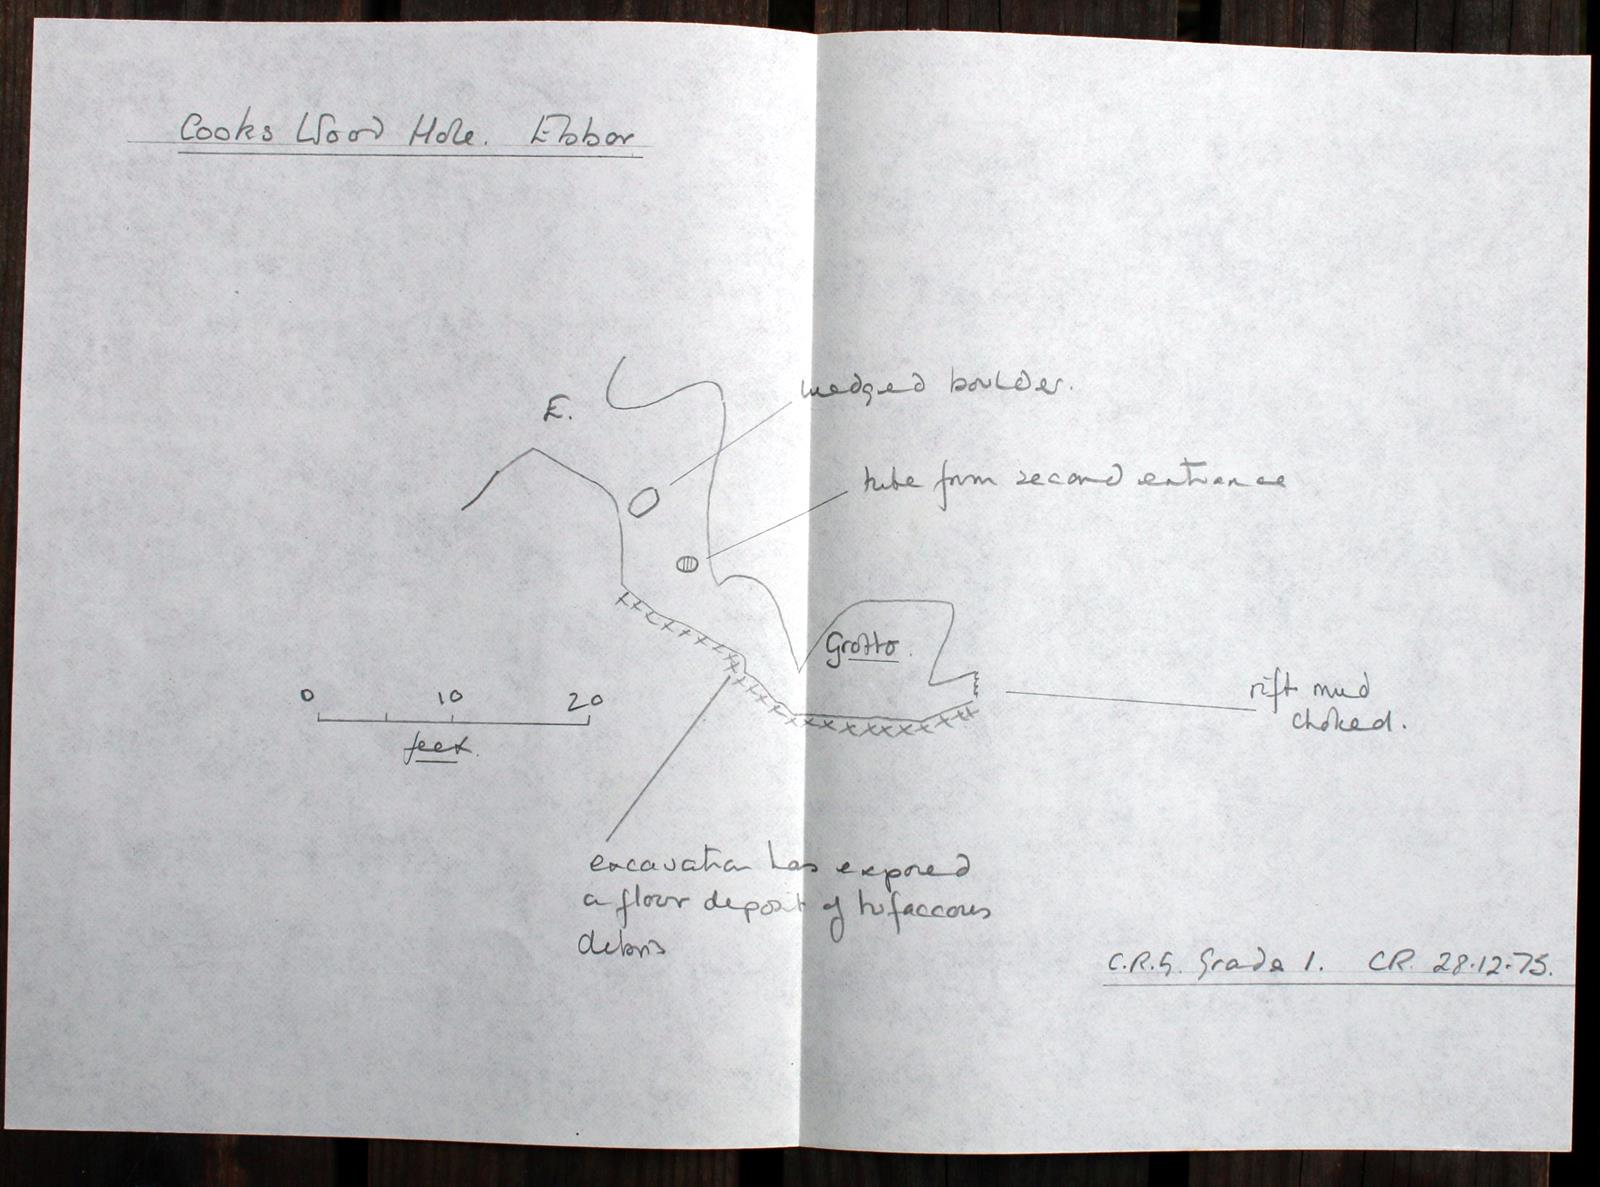 Cooks Wood Hole. Ebbor
wedged boulder.
E.
tube from second entrance
Grotto.
0 10 20
feet.
rift mud
choked.
excavation has exposed
a floor deposit of tufaceous
debris
C.R.G. Grade 1. CR. 28.12.75.